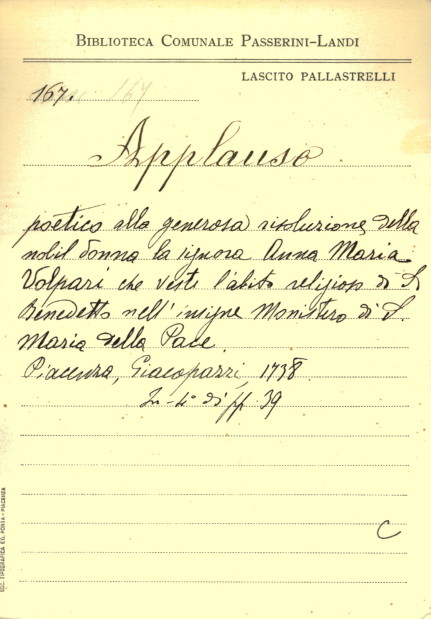 BIBLIOTECA COMUNALE PASSERINI-LANDI
LASCITO PALLASTRELLI
167.
167
Applauso
poetico alla generosa risoluzione della
nobil donna la signora Anna Maria
Volpari che veste l'abito religioso di S.
Benedetto nell'insigne Monistero di S.
Maria della Pace.
Piacenza, Giacopazzi, 1738
In-4° di pp 39
C
SOC. TIPOGRAFICA ED. PORTA - PIACENZA